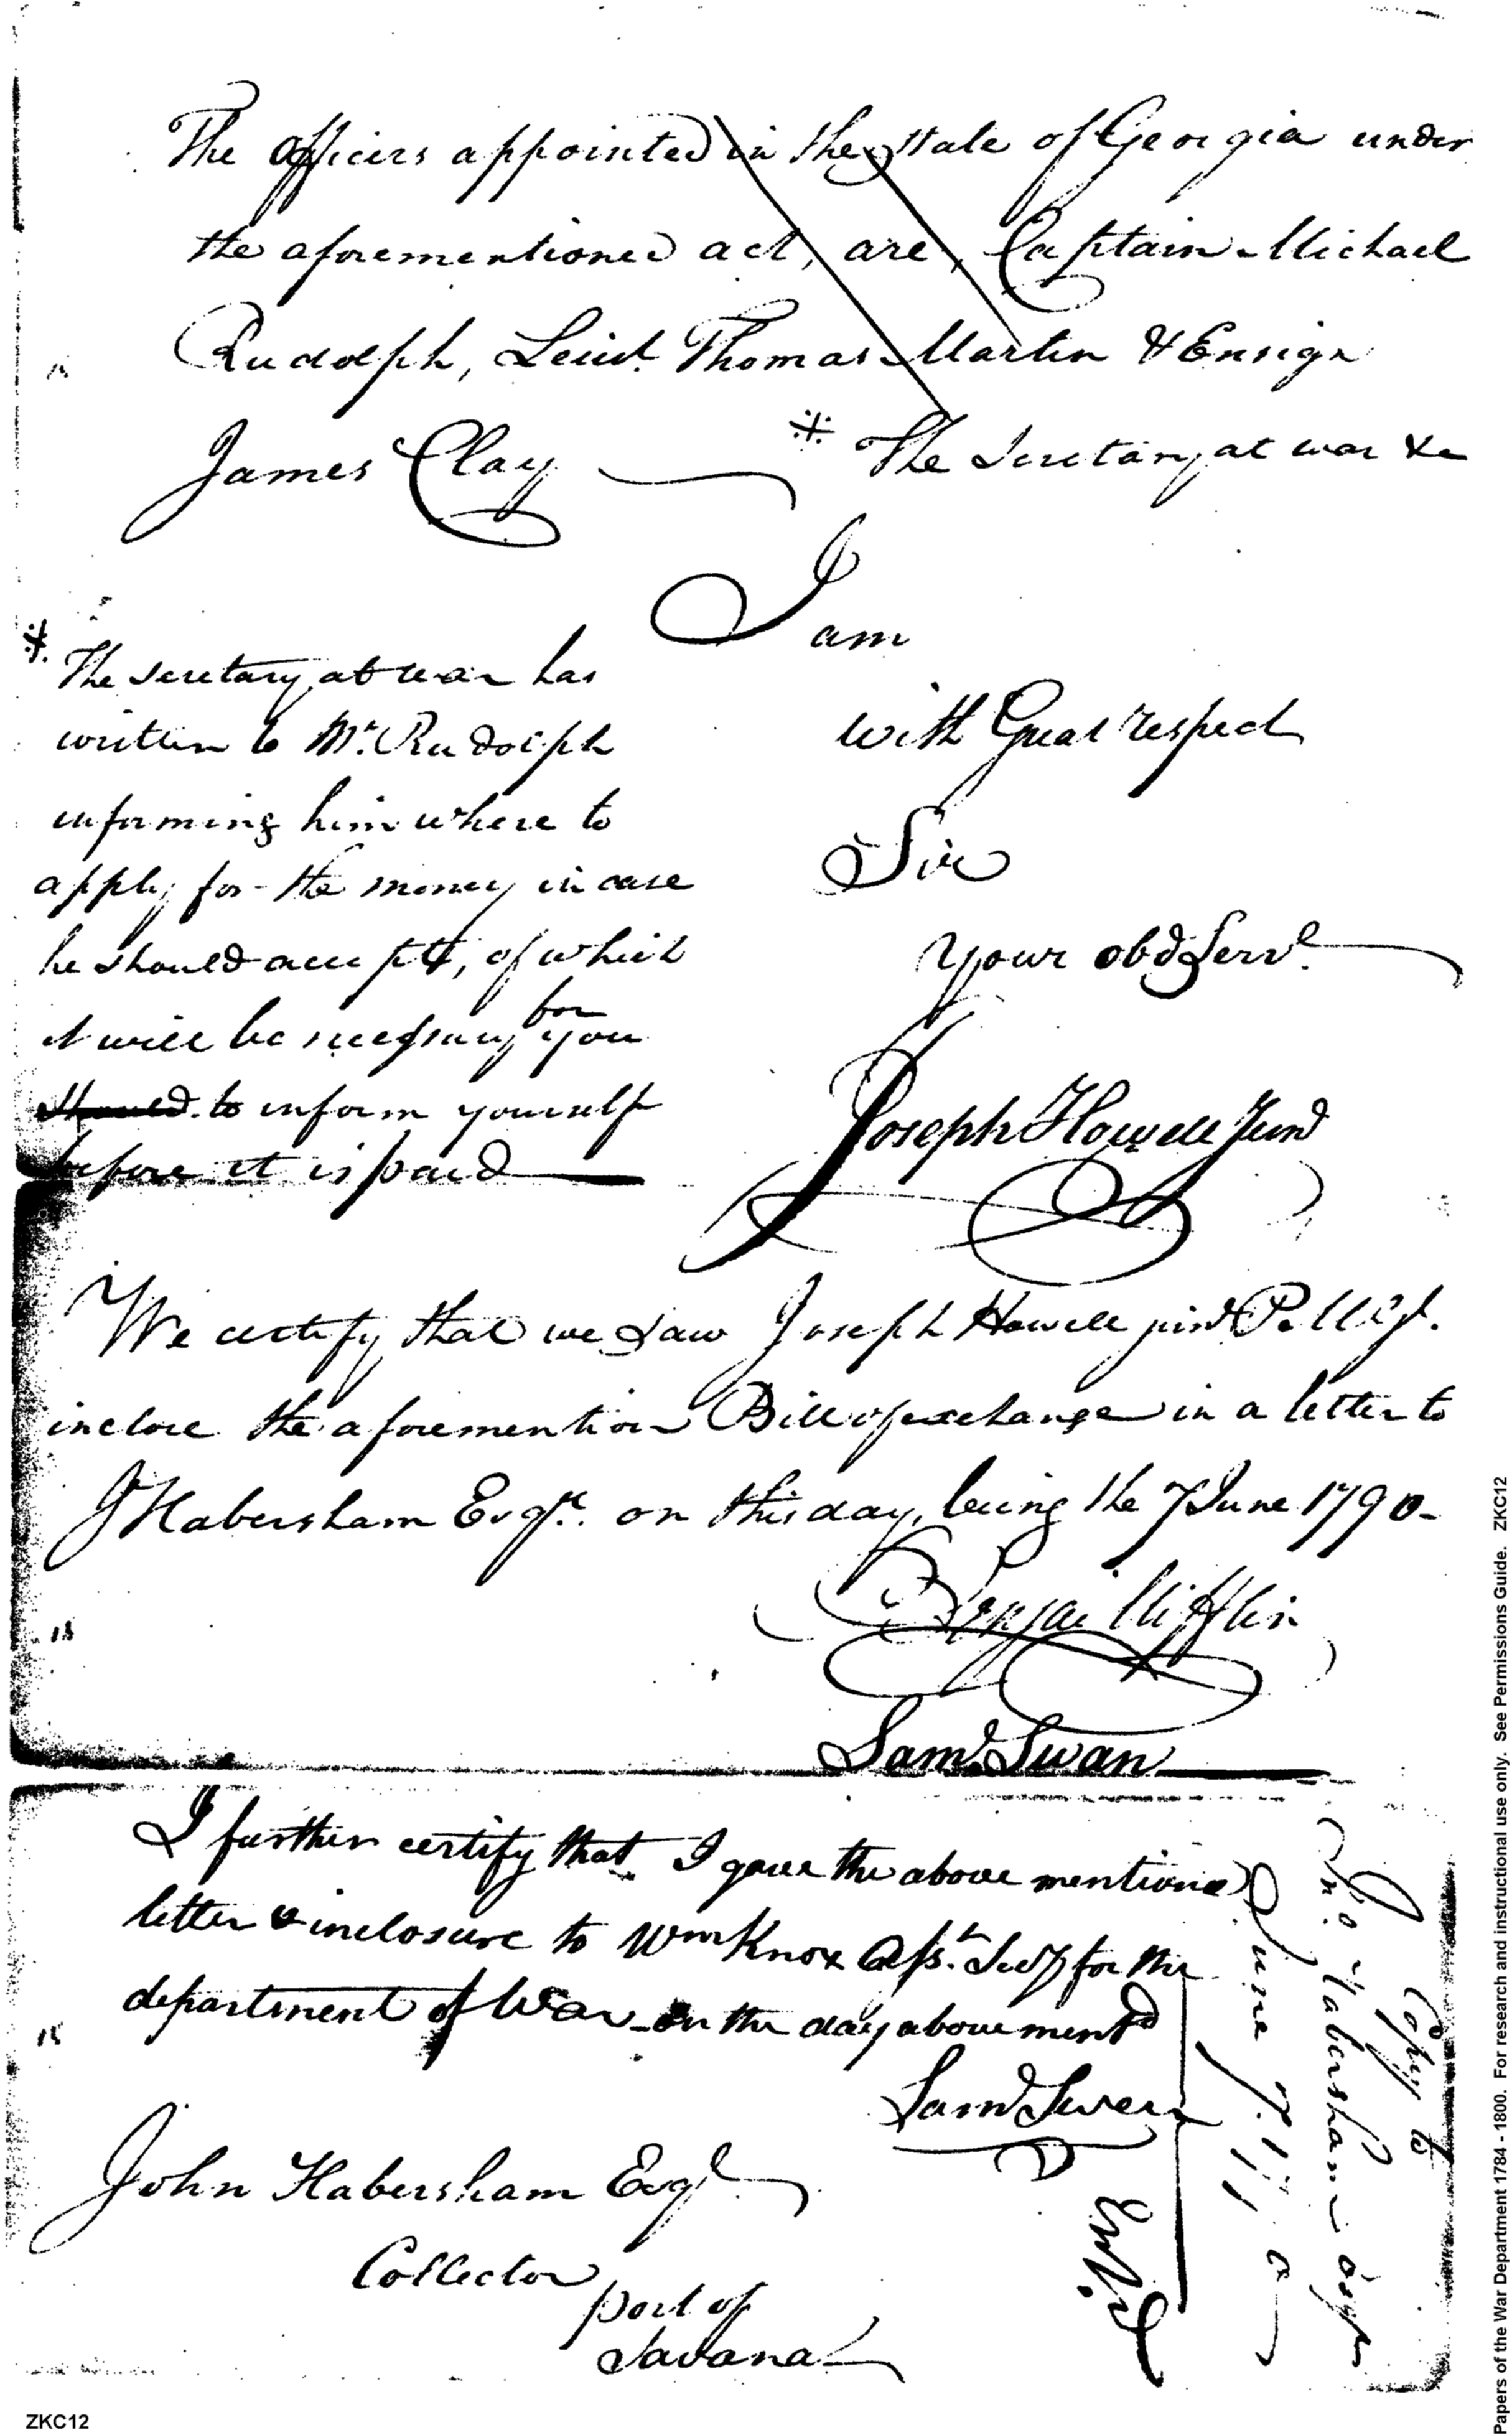 The officers appointed in the state of Georgia under
the aforementioned act, are, Captain Michael
Rudolph, Leiut. Thomas Martin & Ensign
James Clay
* The Secretary at war &c
I
am
with Great respect
Sir
your obd Servt.
Joseph Howell Junr
* The secretary at war has
written to Mr. Rudolph
informing him where to
apply for the money in case
he should accept, of which
it will be necessary for you
should to inform yourself
before it is paid
We certify that we saw Joseph Howell junr P. M Gl.
inclose the aforemention Bill of exchange in a letter to
J Habersham Esqr. on this day, being the 7 June 1790-
Benja Mifflin
Saml Swan
I further certify that I gave the above mentioned
letter & inclosure to Wm Knox Asst. Secy for the
department of War on the day above mentd
Saml Swan
John Habersham Esqr
Collector
port of
Savana
Copy to
Jno Habersham esqr
June 7. 1790
Entd
ZKC12
Papers of the War Department 1784 - 1800. For research and instructional use only. See Permissions Guide. ZKC12